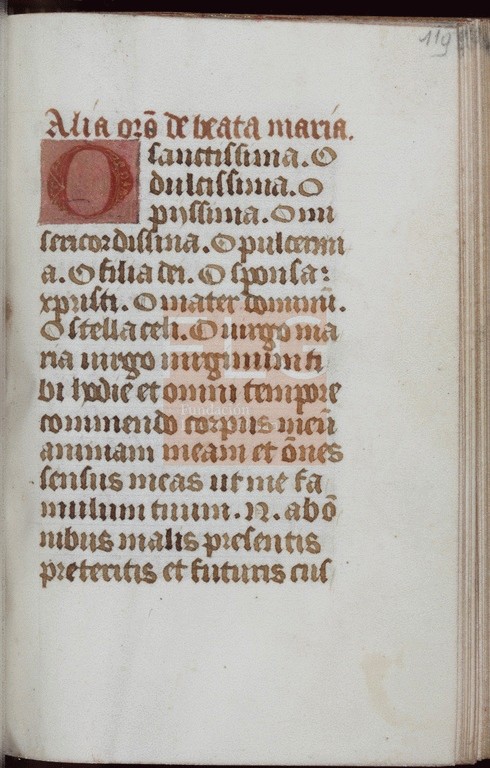 119
Alia orō de beata maria.
O sanctissima. O
dulcissima. O
pijssima. O mi
sericordissima. O pulcerrim
a. O filia dei. O sponsa
xpristi. O mater domini.
O stella celi. O uirgo ma
ria uirgo uirginum ti
bi hodie et omni tempore
commendo corpus meū
animam meam et ōnes
sensus meas ut me fa
mulum tuum. N. ab ō
nibus malis presentis
preteritis et futuris cus
FLG
Fundación